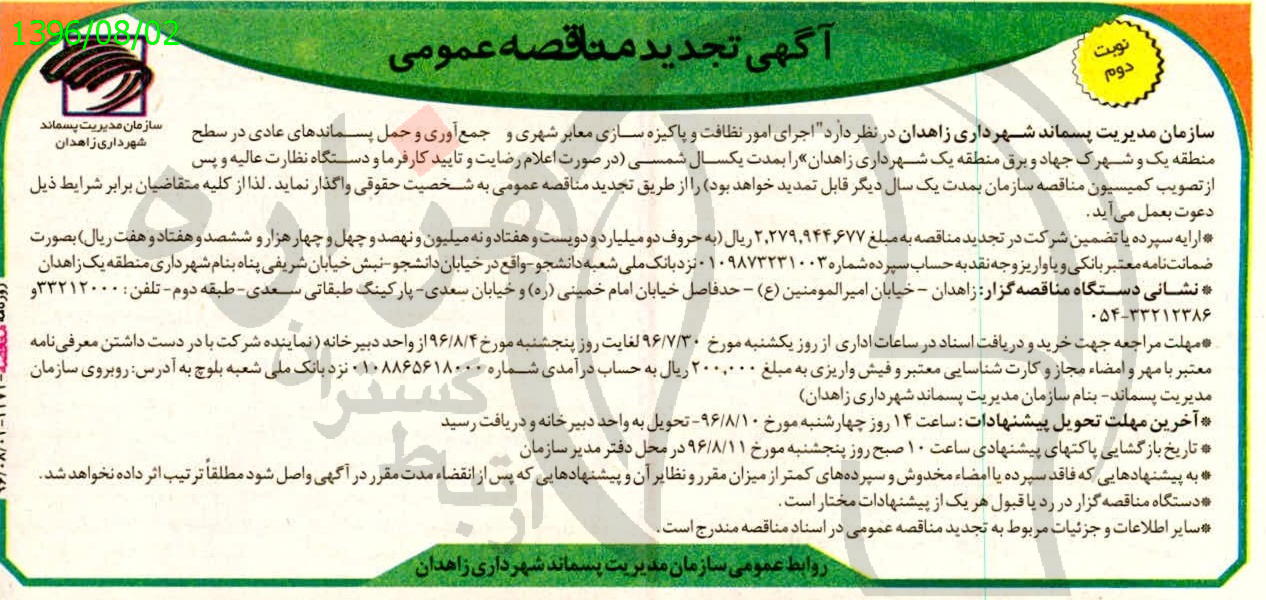 1396/08/02
آگهی تجدید مناقصه عمومی
نوبت
دوم
سازمان مدیریت پسماند
شهرداری زاهدان
سازمان مدیریت پسماند شهرداری زاهدان در نظر دارد "اجرای امور نظافت و پاکیزه سازی معابر شهری و جمع‌آوری و حمل پسماندهای عادی در سطح
منطقه یک و شهرک جهاد و برق منطقه یک شهرداری زاهدان» را بمدت یکسال شمسی (در صورت اعلام رضایت و تایید کارفرما و دستگاه نظارت عالیه و پس
از تصویب کمیسیون مناقصه سازمان بمدت یک سال دیگر قابل تمدید خواهد بود) را از طریق تجدید مناقصه عمومی به شخصیت حقوقی واگذار نماید. لذا از کلیه متقاضیان برابر شرایط ذیل
دعوت بعمل می‌آید.
*ارایه سپرده یا تضمین شرکت در تجدید مناقصه به مبلغ ۲,۲۷۹,۹۴۴,۶۷۷ ریال (به حروف دو میلیارد و دویست و هفتاد و نه میلیون و نهصد و چهل و چهار هزار و ششصد و هفتاد و هفت ریال) بصورت
ضمانت‌نامه معتبر بانکی و یا واریز وجه نقد به حساب سپرده شماره ۰۱۰۹۸۷۳۲۳۱۰۰۳ نزد بانک ملی شعبه دانشجو-واقع در خیابان دانشجو-نبش خیابان شریفی پناه بنام شهرداری منطقه یک زاهدان
* نشانی دستگاه مناقصه‌گزار: زاهدان – خیابان امیرالمومنین (ع) – حدفاصل خیابان امام خمینی (ره) و خیابان سعدی- پارکینگ طبقاتی سعدی- طبقه دوم- تلفن: ۳۳۲۱۲۰۰۰و
۰۵۴-۳۳۲۱۲۳۸۶
*مهلت مراجعه جهت خرید و دریافت اسناد در ساعات اداری از روز یکشنبه مورخ ۹۶/۷/۳۰ لغایت روز پنجشنبه مورخ ۹۶/۸/۴ از واحد دبیرخانه (نماینده شرکت با در دست داشتن معرفی‌نامه
معتبر با مهر و امضاء مجاز و کارت شناسایی معتبر و فیش واریزی به مبلغ ۲۰۰,۰۰۰ ریال به حساب درآمدی شماره ۰۱۰۸۸۶۵۶۱۸۰۰۰ نزد بانک ملی شعبه بلوچ به آدرس: روبروی سازمان
مدیریت پسماند- بنام سازمان مدیریت پسماند شهرداری زاهدان)
*آخرین مهلت تحویل پیشنهادات: ساعت ۱۴ روز چهارشنبه مورخ ۹۶/۸/۱۰- تحویل به واحد دبیرخانه و دریافت رسید
* تاریخ بازگشایی پاکتهای پیشنهادی ساعت ۱۰ صبح روز پنجشنبه مورخ ۹۶/۸/۱۱ در محل دفتر مدیر سازمان
* به پیشنهادهایی که فاقد سپرده یا امضاء مخدوش و سپرده‌های کمتر از میزان مقرر و نظایر آن و پیشنهادهایی که پس از انقضاء مدت مقرر در آگهی واصل شود مطلقاً ترتیب اثر داده نخواهد شد.
*دستگاه مناقصه‌گزار در رد یا قبول هر یک از پیشنهادات مختار است.
*سایر اطلاعات و جزئیات مربوط به تجدید مناقصه عمومی در اسناد مناقصه مندرج است.
روابط عمومی سازمان مدیریت پسماند شهرداری زاهدان
هزاره
گستران
ارتباط
روزنامه مناقصه